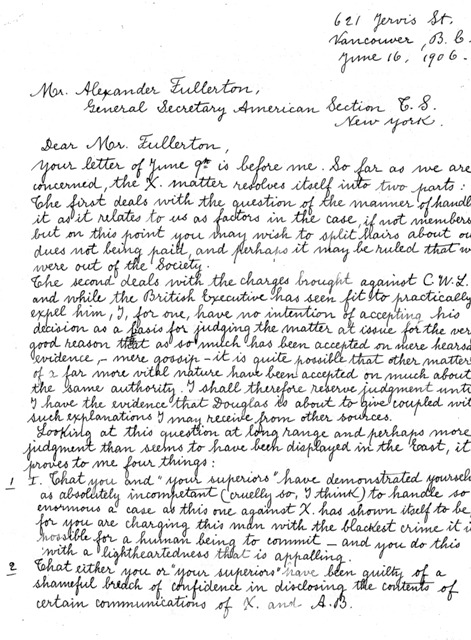 621 Jervis St.
Vancouver, B.C.
June 16, 1906.
Mr. Alexander Fullerton,
General Secretary American Section T.S.
New York.
Dear Mr. Fullerton,
Your letter of June 9th is before me. So far as we are
concerned, the X. matter resolves itself into two parts:
The first deals with the question of the manner of handl
it as it relates to us as factors in the case, if not members
but on this point you may wish to split hairs about ou
dues not being paid, and perhaps it may be ruled that w
were out of the Society.
The second deals with the charges brought against C.W.L.
and while the British Executive has seen fit to practically
expel him, I, for one, have no intention of accepting his
decision as a basis for judging the matter at issue for the ver
good reason that as so much has been accepted on mere hearsa
evidence, – mere gossip – it is quite possible that other matter
of a far more vital nature have been accepted on much about
the same authority. I shall therefore reserve judgment unti
I have the evidence that Douglas is about to give coupled wit
such explanations I may receive from other sources.
Looking at this question at long range and perhaps more
judgment than seems to have been displayed in the East, it
proves to me four things:
1 I. That you and "your superiors" have demonstrated yourselv
as absolutely incompetant (cruelly so, I think) to handle so
enormous a case as this one against X. has shown itself to be
for you are charging this man with the blackest crime it i
possible for a human being to commit – and you do this
with a lightheartedness that is appalling.
2 That either you or "your superiors" have been guilty of a
shameful breach of confidence in disclosing the contents of
certain communications of X. and A.B.